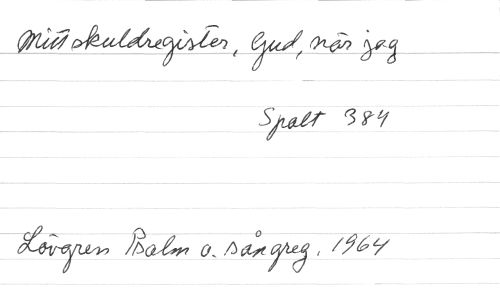 Mitt skuldregister, Gud, när jag
Spalt 384
Lövgren Psalm o. sångreg. 1964